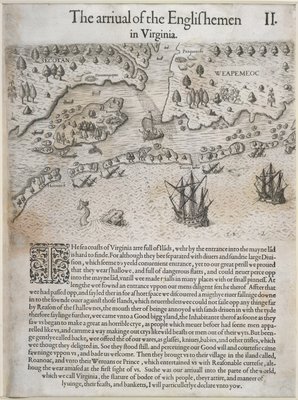 The arriual of the Englishemen II.
in Virginia.
SECOTAN
WEAPEMEOC
Pasquenoke
THe sea coasts of Virginia arre full of Ilāds, wehr by the entrance into the mayne lād
is hard to finde. For although they bee separated with diuers and sundrie large Diui-
sion, which seeme to yeeld conuenient entrance, yet to our great perill we proued
that they wear shallowe, and full of dangerous flatts, and could neuer perce opp
into the mayne lād, vntill wee made trialls in many places with or small pinness. At
lengthe wee fownd an entrance vppon our mens diligent serche therof. Affter that
wee had passed opp, and sayled ther in for ashort space we discouered a mightye riuer fallnige downe
in to the sownde ouer against those Ilands, which neuertheless wee could not saile opp any thinge far
by Reason of the shallewnes, the mouth ther of beinge annoyed with sands driuen in with the tyde
therfore saylinge further, wee came vnto a Good bigg yland, the Inhabitante therof as soone as they
saw vs began to make a great an horrible crye, as people which meuer befoer had seene men appa-
relled like vs, and camme a way makinge out crys like wild beasts or men out of their wyts. But been-
ge gentlye called backe, wee offred the of our wares, as glasses, kniues, babies, and other trifles, which
wee thougt they deligted in. Soe they stood still, and perceuinge our Good will and courtesie came
fawninge vppon vs, and bade us welcome. Then they brougt vs to their village in the iland called,
Roanoac, and vnto their Weroans or Prince, which entertained vs with Reasonable curtesie, alt-
houg the wear amased at the first sight of vs. Suche was our arriuall into the parte of the world,
which we call Virginia, the stature of bodee of wich people, theyr attire, and maneer of
lyuinge, their feasts, and banketts, I will particullerlye declare vnto yow.